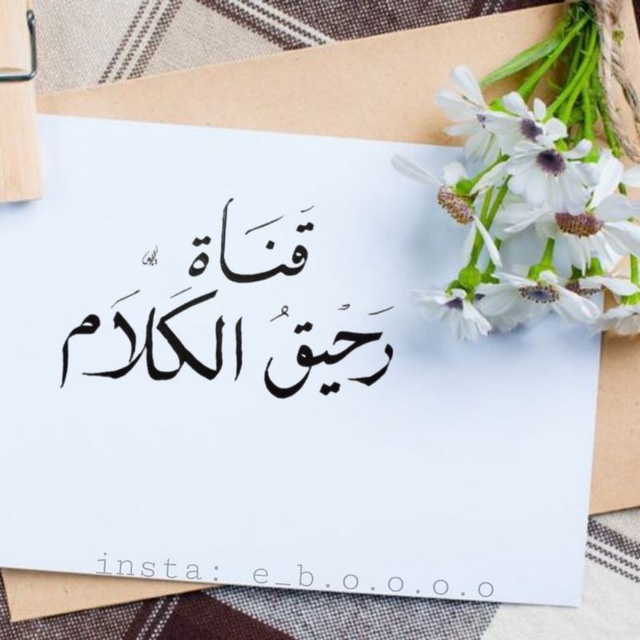 قَنَاة
رَحْيقُ الكَلَام
insta: e_b.o.o.o.o